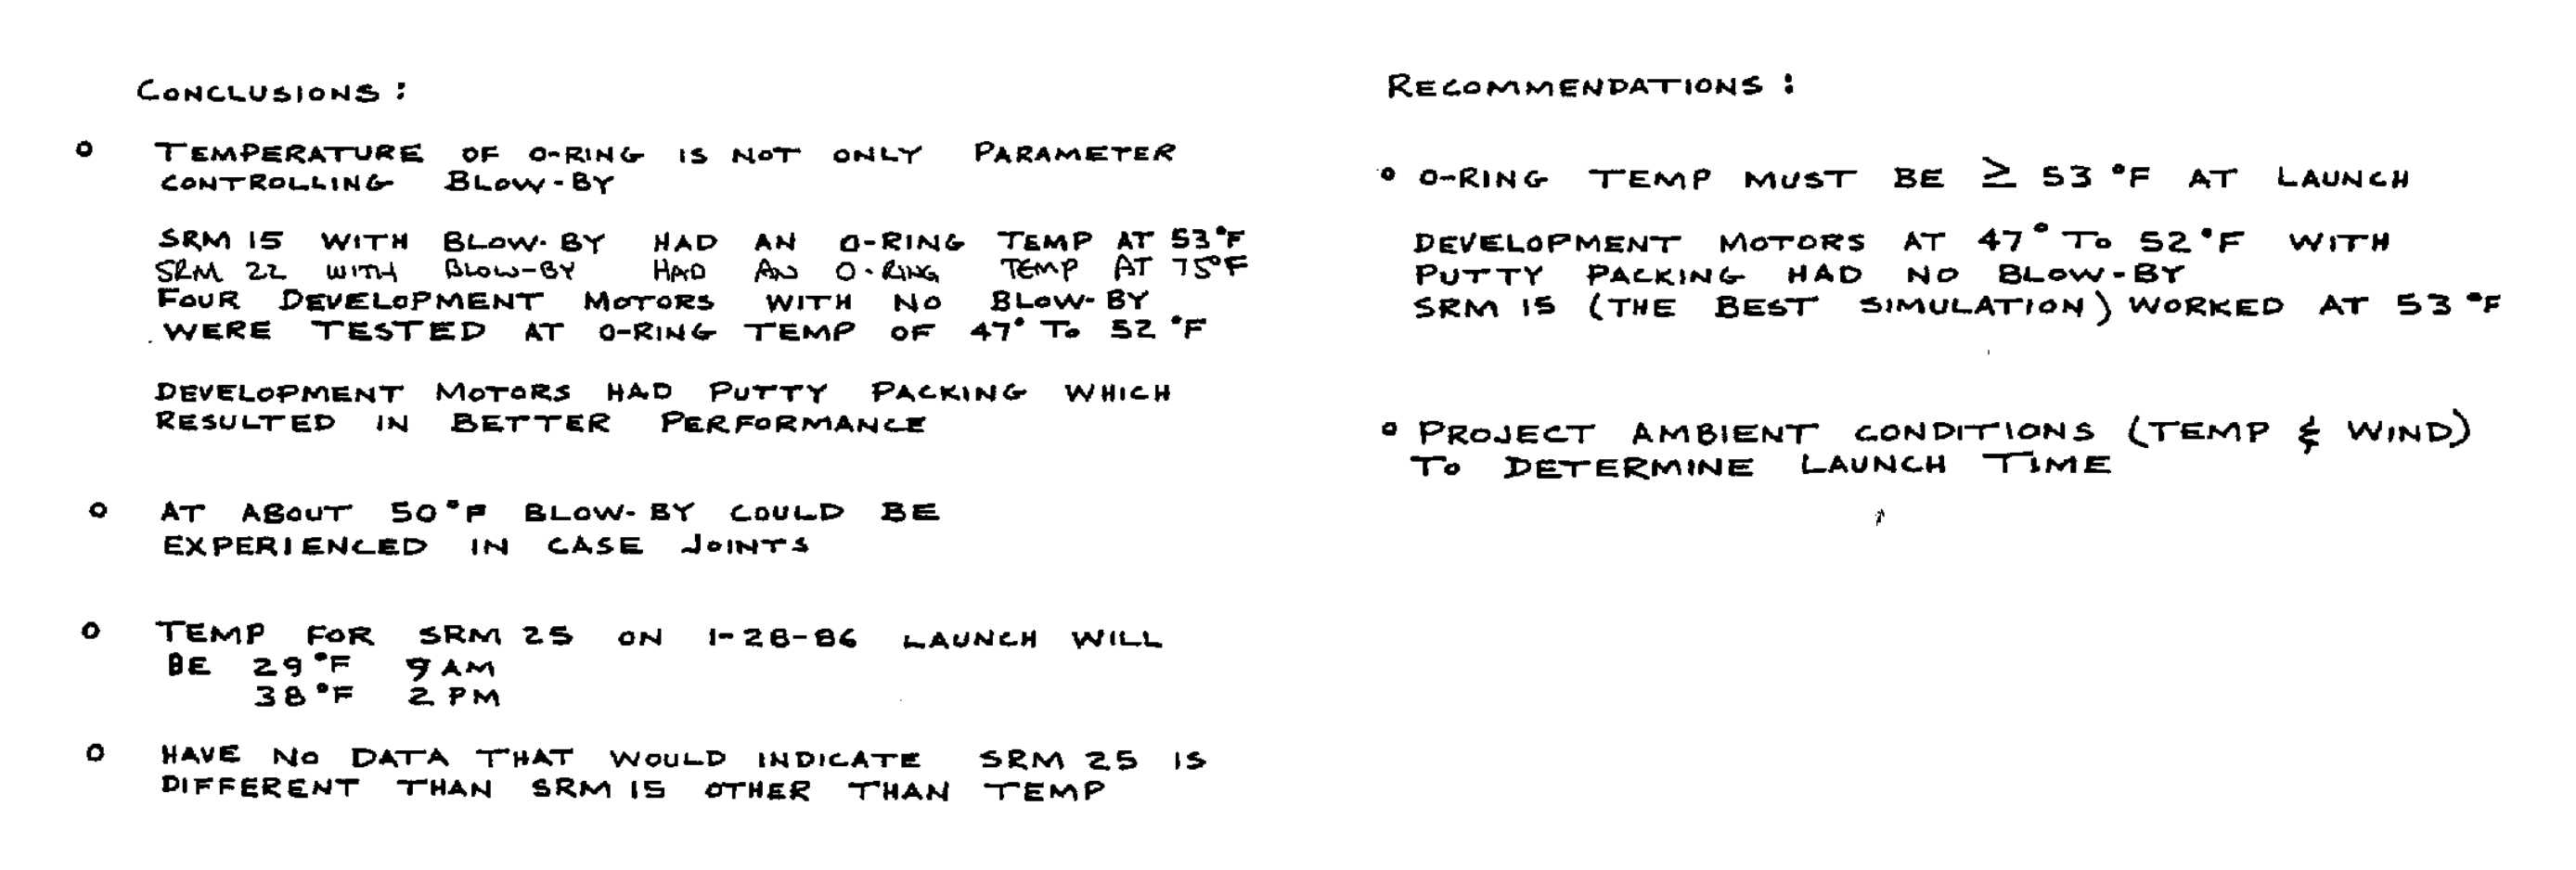 CONCLUSIONS:
o TEMPERATURE OF O-RING IS NOT ONLY PARAMETER
CONTROLLING BLOW-BY
SRM 15 WITH BLOW-BY HAD AN O-RING TEMP AT 53°F
SRM 22 WITH BLOW-BY HAD AN O-RING TEMP AT 75°F
FOUR DEVELOPMENT MOTORS WITH NO BLOW-BY
WERE TESTED AT O-RING TEMP OF 47° TO 52°F
DEVELOPMENT MOTORS HAD PUTTY PACKING WHICH
RESULTED IN BETTER PERFORMANCE
o AT ABOUT 50°F BLOW-BY COULD BE
EXPERIENCED IN CASE JOINTS
o TEMP FOR SRM 25 ON 1-28-86 LAUNCH WILL
BE 29°F 9 AM
38°F 2 PM
o HAVE NO DATA THAT WOULD INDICATE SRM 25 IS
DIFFERENT THAN SRM 15 OTHER THAN TEMP
RECOMMENDATIONS:
o O-RING TEMP MUST BE ≥ 53°F AT LAUNCH
DEVELOPMENT MOTORS AT 47° TO 52°F WITH
PUTTY PACKING HAD NO BLOW-BY
SRM 15 (THE BEST SIMULATION) WORKED AT 53°F
o PROJECT AMBIENT CONDITIONS (TEMP & WIND)
TO DETERMINE LAUNCH TIME